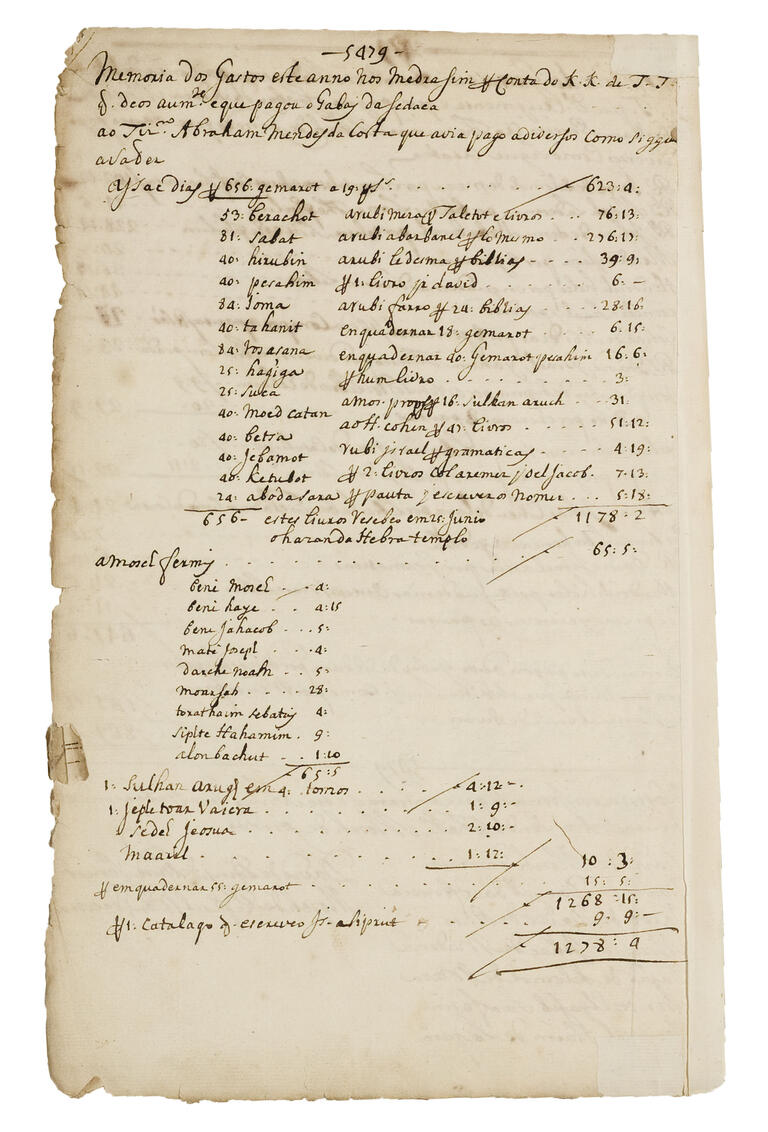 — 5479 —
Memoria dos Gastos este anno nos Medrasim conta do K. K. de T. T.
q. deos aum.te e que pagou o Gabaj da sedaca
ao Abraham Mendes da Costa que avia pago a diversos como sigue
a saber
a Jsac dias 656: gemarot a 19: 623: 4:
53: berachot a rubi mera Taletot e livros . . . 76: 13:
81: sabat a rubi abarbanel lo mesmo . . 276: 17:
40: hirubin a rubi ledesma biblias . . . 39: 9:
40: pesahim 1: livro jr david . . . 6: —
84: Joma a rubi farro 24: biblias . . . 28: 16:
40: tahanit enquadernar 18: gemarot . . . 6: 15:
84: rosasana enquadernar 40: Gemarot pesahim 16: 6:
25: hagiga hum livro . . . 3:
25: suca a mos. 16: sulkan aruch . . . 31:
40: Moed catan ao H. cohen 47: livros . . . 51: 12:
40: betsa
40: Jebamot rubi jsrael gramaticas . . . 4: 19:
40: Ketubot 2: livros jdel Jacob . 7. 13:
24: abodasara pauta j escrever os nomes . . . 5: 18:
656 — estes livros Resebeo em 25: Junio 1178: 2
o hazan da Hebra templo
a Mosel fermj . . . 65: 5:
beni Mosel . . 4:
beni haye . . 4: 15
bene Jahacob . . . 5:
mate Josepl . . 4:
darche noah . . 5:
moarsah . . . . 28:
torathaim sebatij 4:
siplte Hahamim . 9:
alonbachut . . 1: 10
65: 5
1: Sulhan arug em 4: tomos . . . 4: 12 -
1: Jeple toar Vaiera . . . 1: 9: -
1 Sedel Jeosua . . . 2: 10: -
Maaril . . . 1: 12: 10: 3:
emquadernar 55: gemarot . . . 15: 5:
1268: 15:
1: Catalago q. escreveo Js. aliprut . . . 9: 9: —
1278: 4